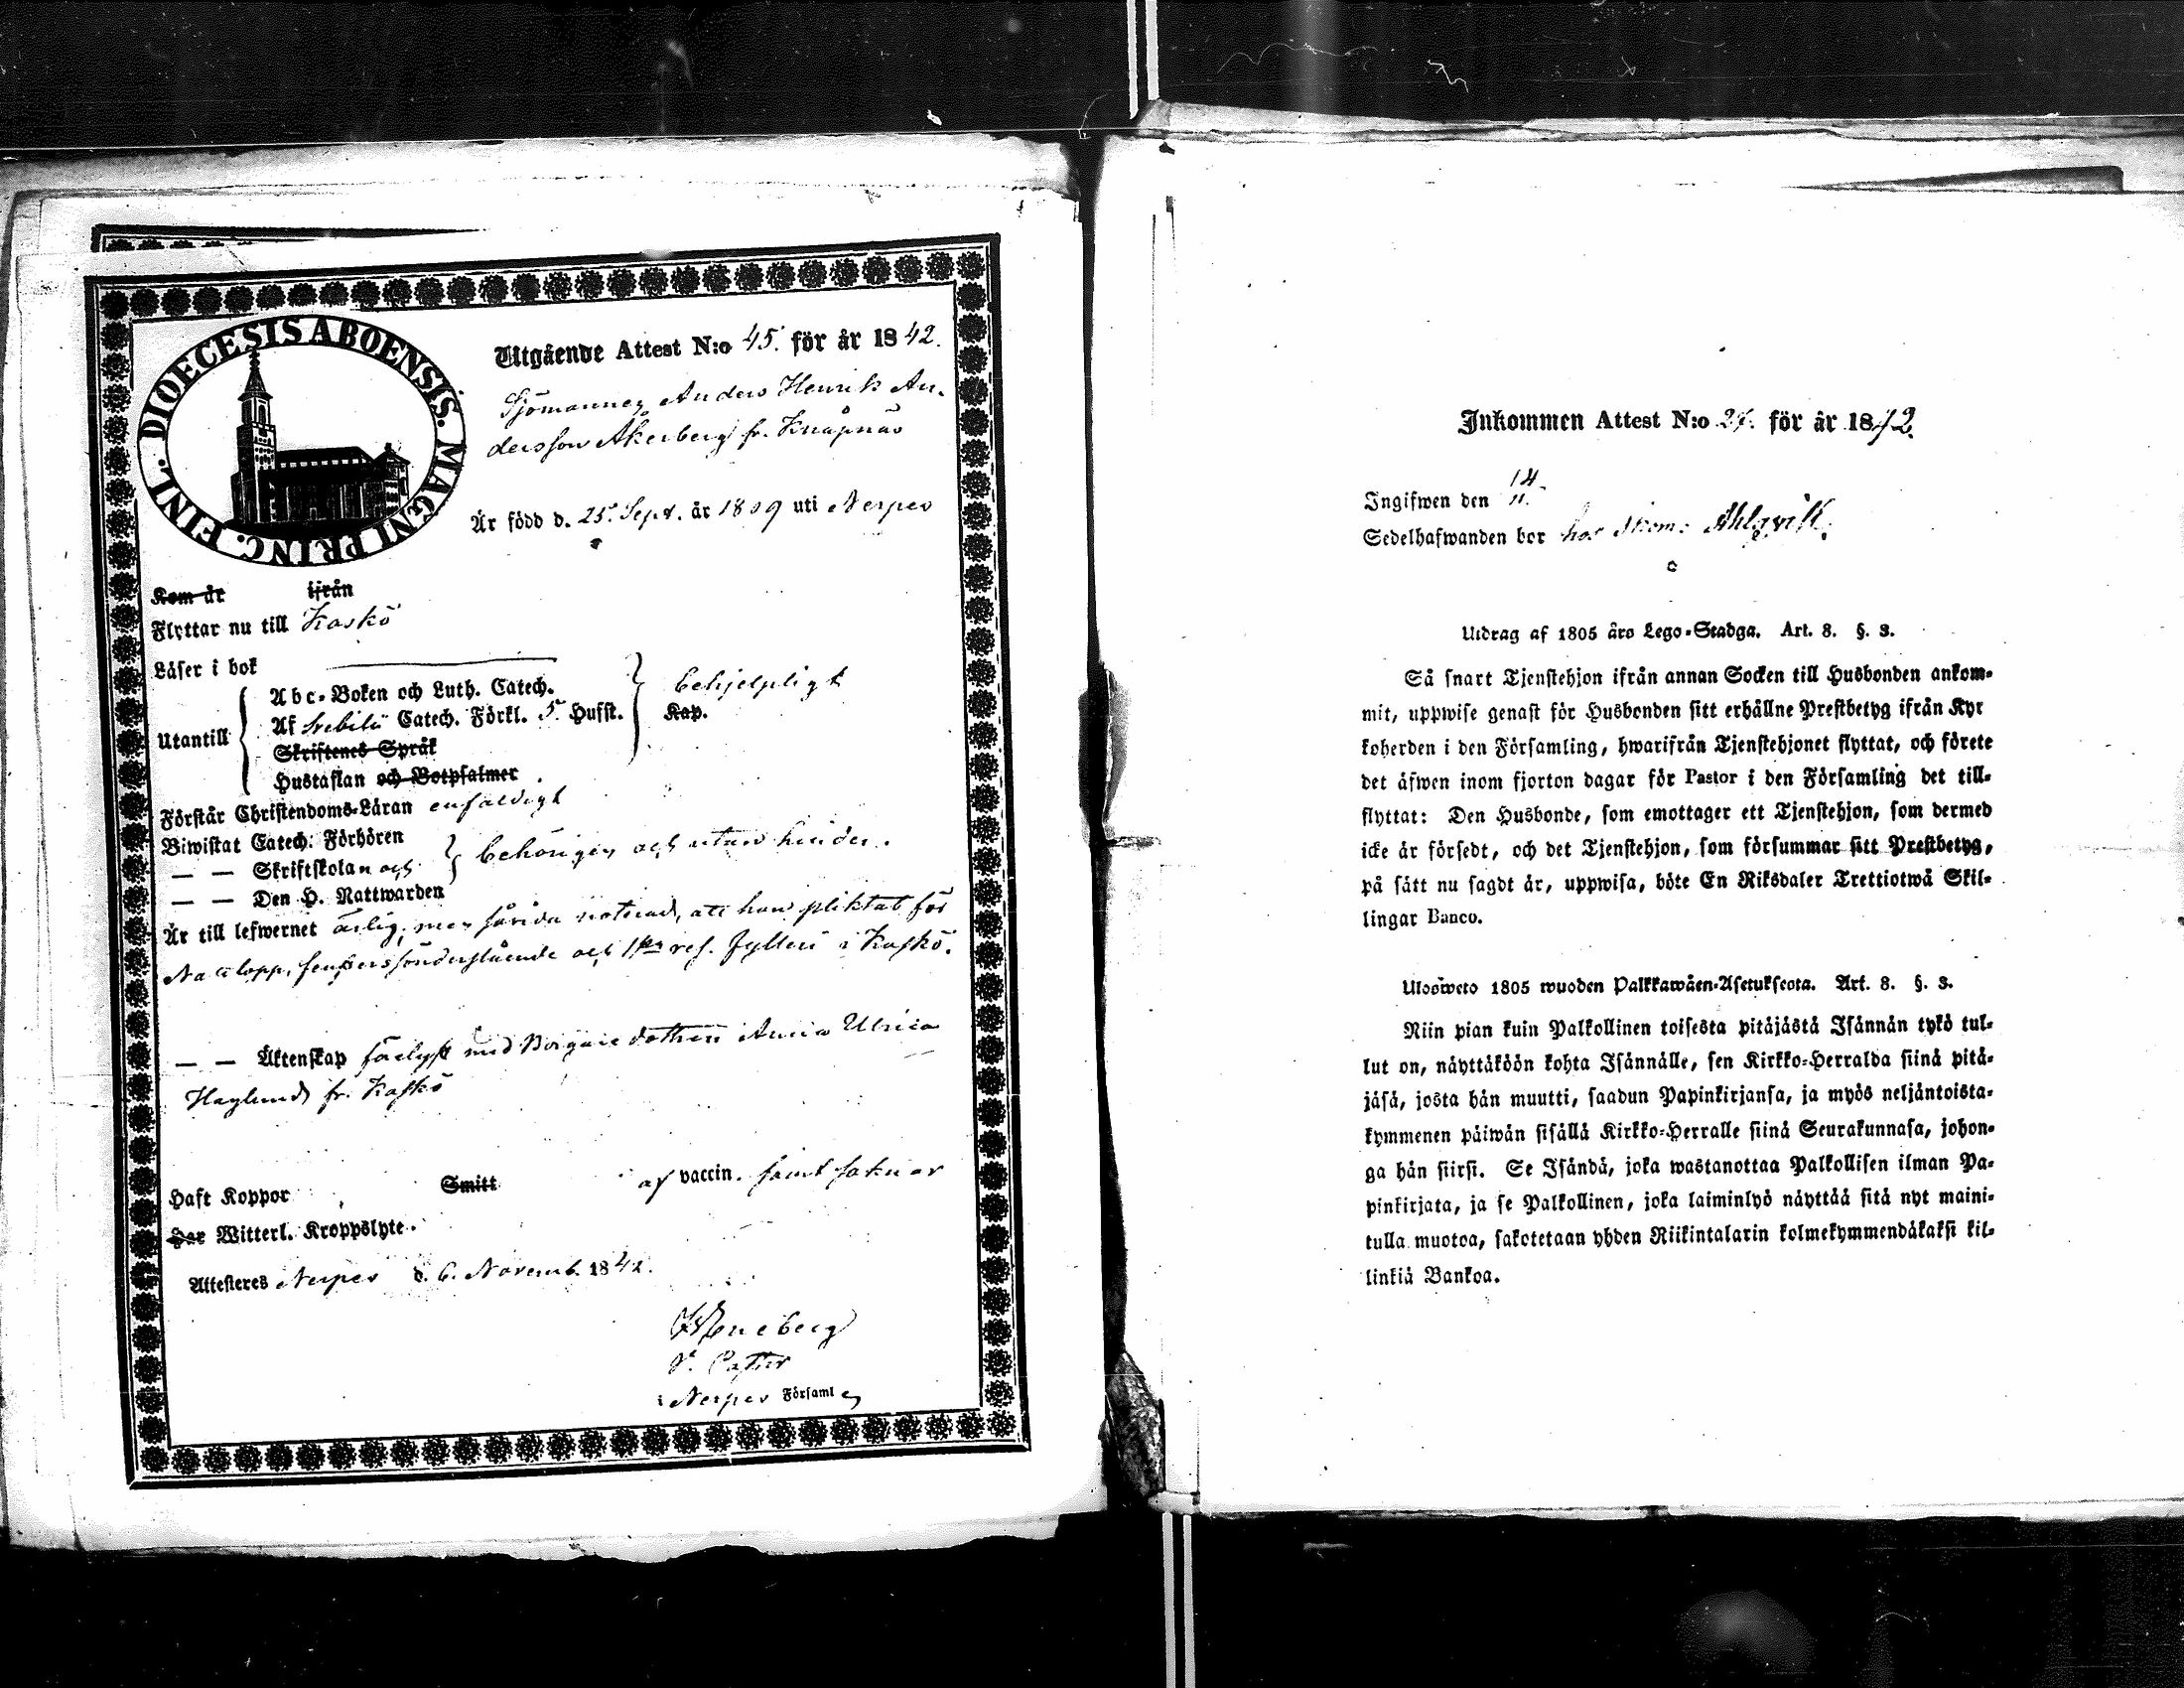 DIOECESIS ABOENSIS. MAGNI PRINC. FINL.
Utgående Attest N:o 45. för år 1842.
Sjömannen Anders Henrik An-
dersson Åkerberg fr. Knåpnäs
Är född d. 25. Sept. år 1809 uti Nerpes
Kom år ifrån
Flyttar nu till Kaskö
Läser i bok
Abc-Boken och Luth. Catech. behjelpligt
Utantill Af Svebilii Catech. Förkl. 5. Hufst. Kap.
Skriftenes Språk
Hustaflan och Botpsalmer
Förstår Christendoms-Läran enfaldigt
Biwistat Catech. Förhören
— — Skriftskolan och behörigen och utan hinder.
— — Den H. Nattwarden
Är till lefwernet ärlig, men noterad, att han pliktat för
Nattlopp, fensters sönderslående och 1 resa fylleri i Kaskö.
— — Äktenskap förlyst med Borgaredottren Anna Ulrica
Haglund fr. Kaskö
Haft Koppor Smitt af vaccin. samt saknar
Har Witterl. Kroppslyte.
Attesteres Nerpes d. 6. Novemb. 1842.
V. Pastor
i Nerpes Församl
Inkommen Attest N:o för år 1842.
Ingifwen den 14/11.
Sedelhafwanden bor hos Ahlqvist.
Utdrag af 1805 års Lego-Stadga. Art. 8. §. 3.
Så snart Tjenstehjon ifrån annan Socken till Husbonden ankom-
mit, uppwise genast för Husbonden sitt erhållne Prestbetyg ifrån Kyr
koherden i den Församling, hwarifrån Tjenstehjonet flyttat, och förete
det äfwen inom fjorton dagar för Pastor i den Församling det till-
flyttat: Den Husbonde, som emottager ett Tjenstehjon, som dermed
icke är försedt, och det Tjenstehjon, som försummar sitt Prestbetyg,
på sätt nu sagdt är, uppwisa, böte En Riksdaler Trettiotwå Skil-
lingar Banco.
Ulosweto 1805 wuoden Palkkawäen-Asetuksesta. Art. 8. §. 3.
Niin pian kuin Palkollinen toisesta pitäjästä Isännän tykö tul-
lut on, näyttäköön kohta Isännälle, sen Kirkko-Herralda siinä pitä-
jäsä, josta hän muutti, saadun Papinkirjansa, ja myös neljäntoista-
kymmenen päiwän sisällä Kirkko-Herralle siinä Seurakunnasa, johon-
ga hän siirsi. Se Isändä, joka wastanottaa Palkollisen ilman Pa-
pinkirjata, ja se Palkollinen, joka laiminlyö näyttää sitä nyt maini-
tulla muotoa, sakotetaan yhden Riikintalarin kolmekymmendäkaksi kil-
linkiä Bankoa.